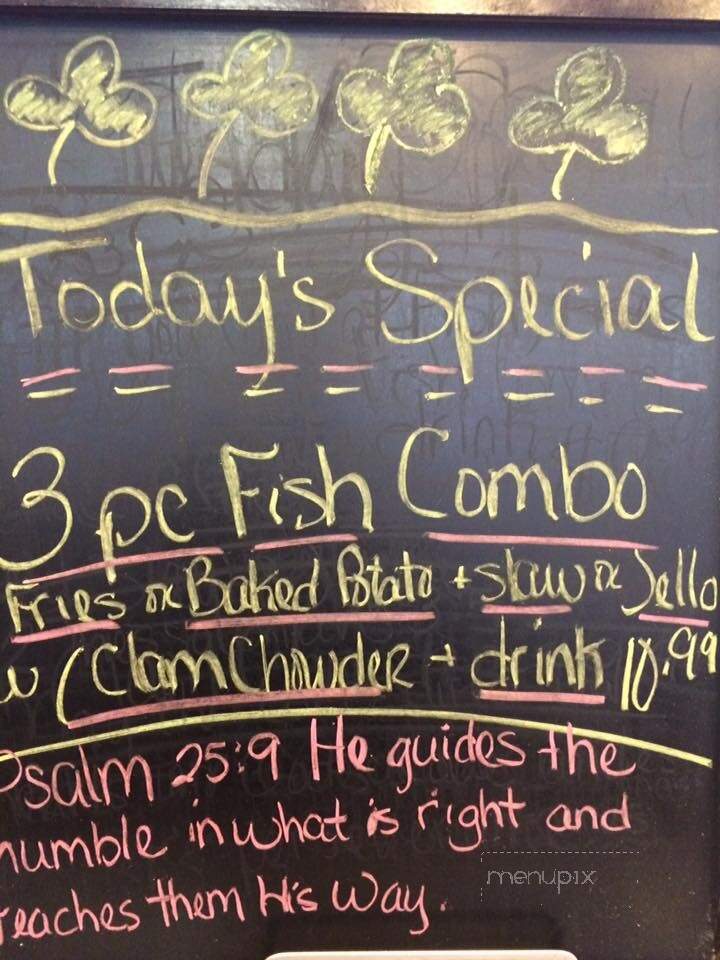 Today's Special
3 pc Fish Combo
Fries or Baked Potato + slaw or Jello
w/ Clam Chowder + drink 10.99
Psalm 25:9 He guides the
humble in what is right and
teaches them His Way.
menupix